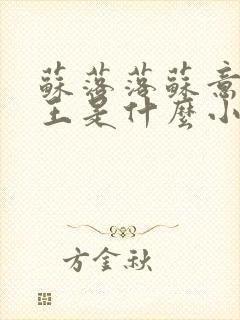 蘇落落蘇意
王是什麼小
方金秋